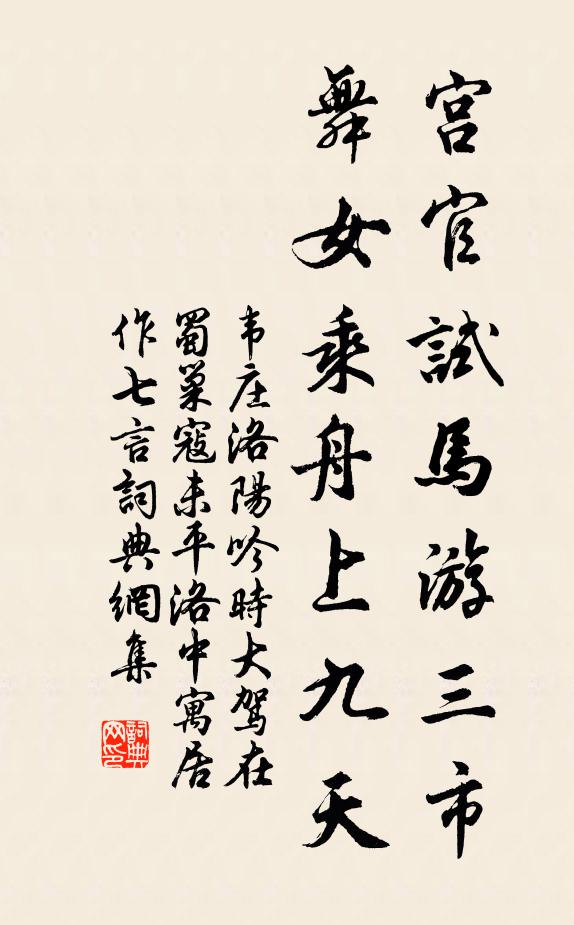 宫官試馬游三市
舞女乘舟上九天
韦庄洛陽吟時大駕在
蜀巢寇未平洛中寓居
作七言詞典網集
詞典
网印